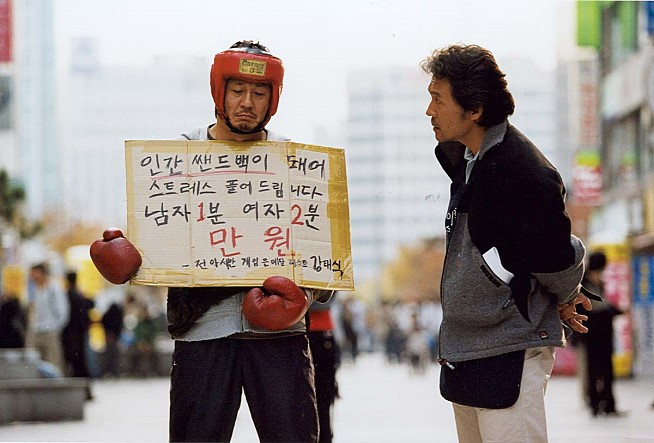 인간 쌘드백이 돼어
스트레스 풀어 드립니다
남자 1분 여자 2분
만 원
- 전 아세안 게임 은메달리스트 강태식